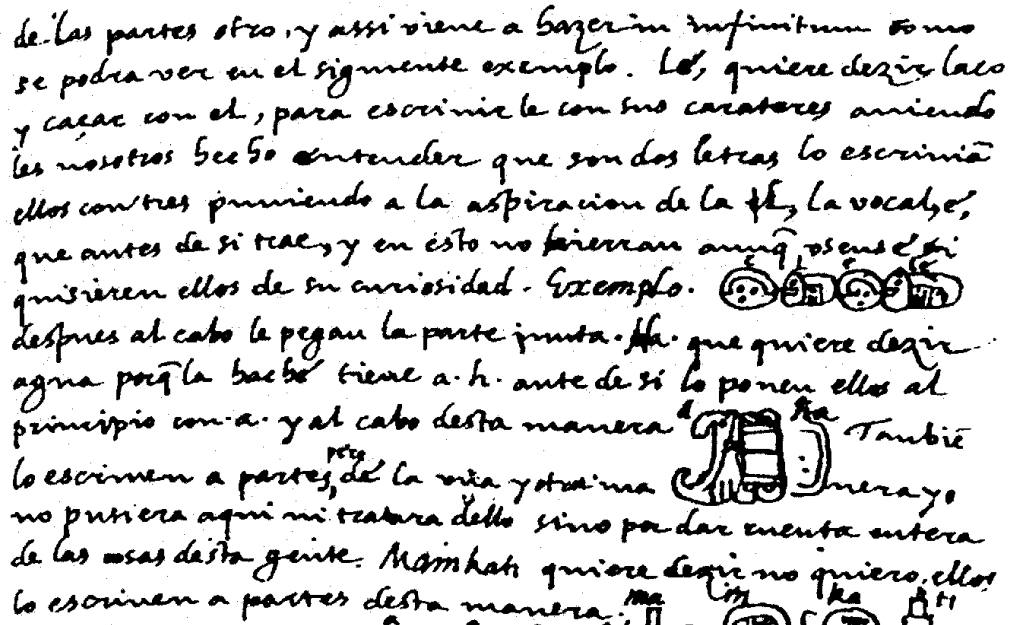 de las partes otro, y assi viene a hazer in infinitum como
se podra ver en el siguiente exemplo. Lé, quiere dezir laço
y caçar con el, para escrivirle con sus carateres aviendo
les nosotros hecho entender que son dos letras lo escrivian
ellos con tres puniendo a la aspiracion de la l, la vocal, é,
que antes de si trae, y en esto no hierran aunq̃ usense si
quisieren ellos de su curiosidad. Exemplo. e l e le
despues al cabo le pegan la parte junta. Ha. que quiere dezir
agua porq̃ la hache tiene a. h. ante de si lo ponen ellos al
principio con a. y al cabo desta manera a ha Tambiẽ
lo escriven a partes, pero de la una y otra ma nera yo
no pusiera aqui ni tratara dello sino por dar cuenta entera
de las cosas desta gente. Mainkati quiere dezir no quiero, ellos
lo escriven a partes desta manera: ma i n ka ti